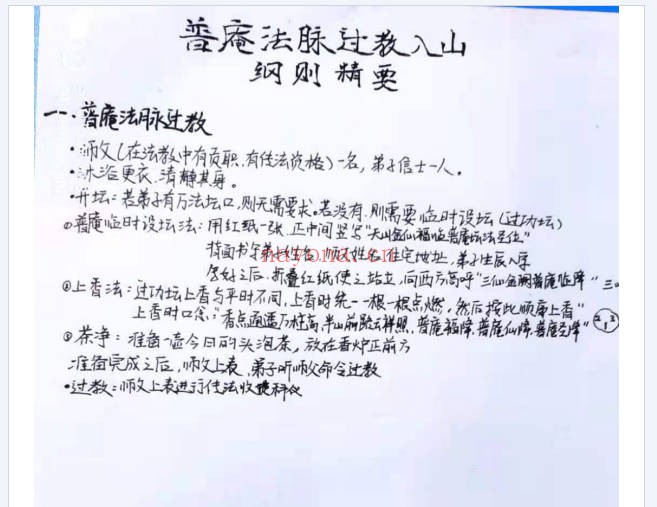 普庵法脉过教入山
纲则精要
一、普庵法脉过教
·师父(在法教中有贡职,有任法资格)一名,弟子信士一人。
·沐浴更衣,清静其身。
·开坛:若弟子有万法坛口,则无需要求。若没有,则需要临时设坛(过功坛)
①普庵临时设坛法:用红纸一张,正中间竖写"天山金仙福临普庵 法 位"
背面书写弟子姓名,师父姓名,住宅地址,弟子生辰八字
写好之后,折叠红纸使之站立,向西方高呼"三仙金阙普庵临降"三
nayona.cn
②上香法:过功坛上香与平时不同,上香时统一一根一根点燃,然后按此顺序上香
上香时口念:"香点通透万柱高,半山前 祥照,普庵福降,普庵仙降,普庵圣降"
2 3
1
③茶净:准备一壶今日的头泡茶,放在香炉正前方
准备完成之后,师父上表,弟子听师父命令过教
·过教:师父上表进行任法收 科仪